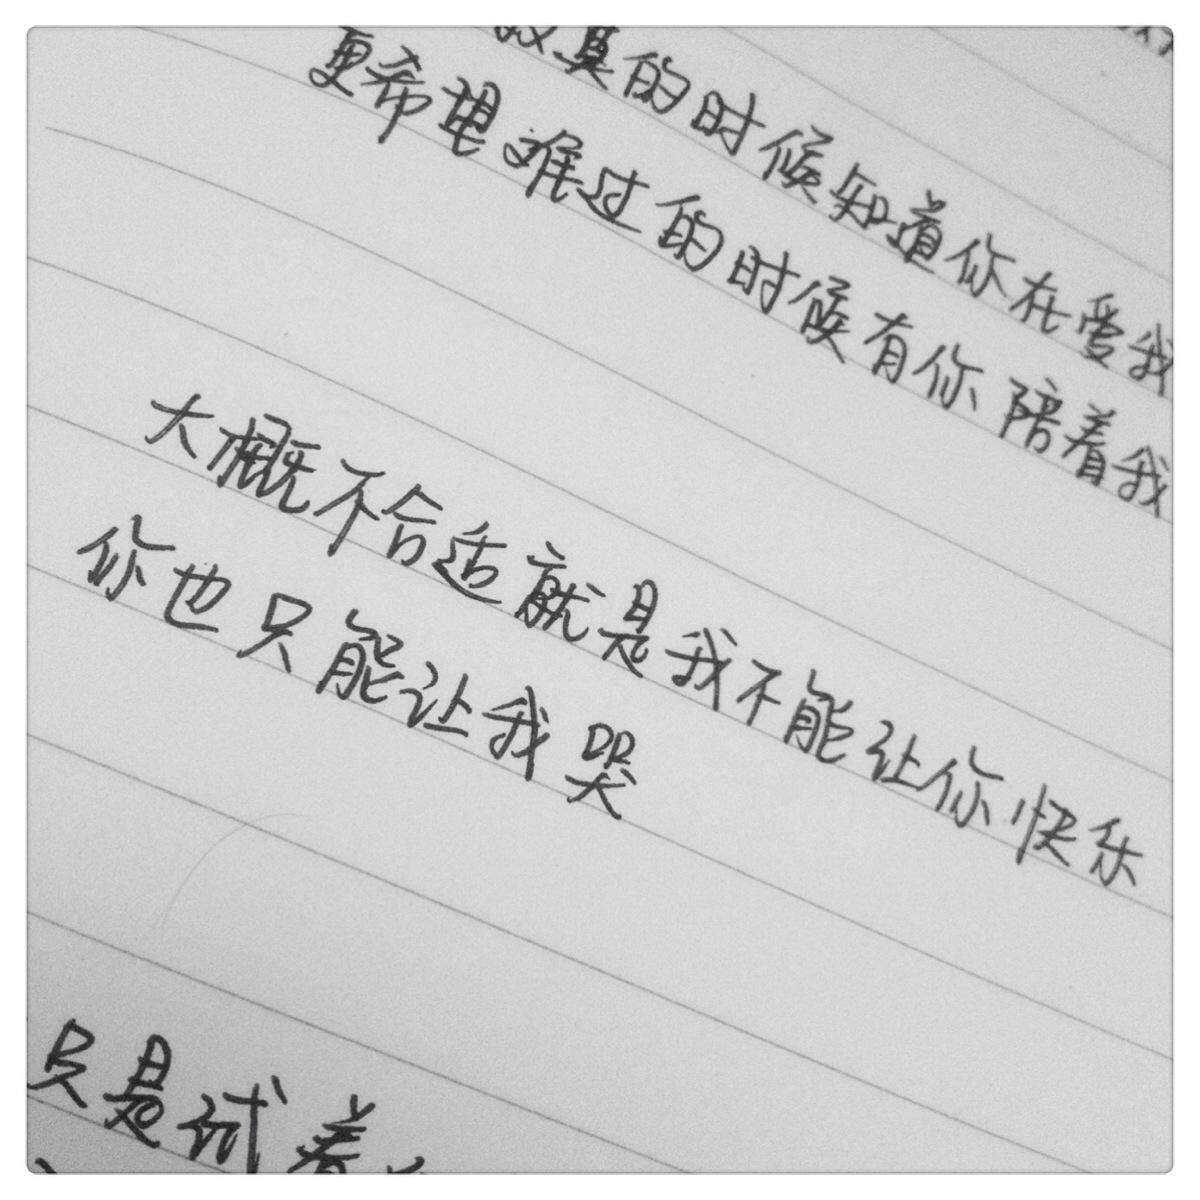 真的时候知道你在爱我
更希望难过的时候有你陪着我
大概不合适就是我不能让你快乐
你也只能让我哭
只是试着